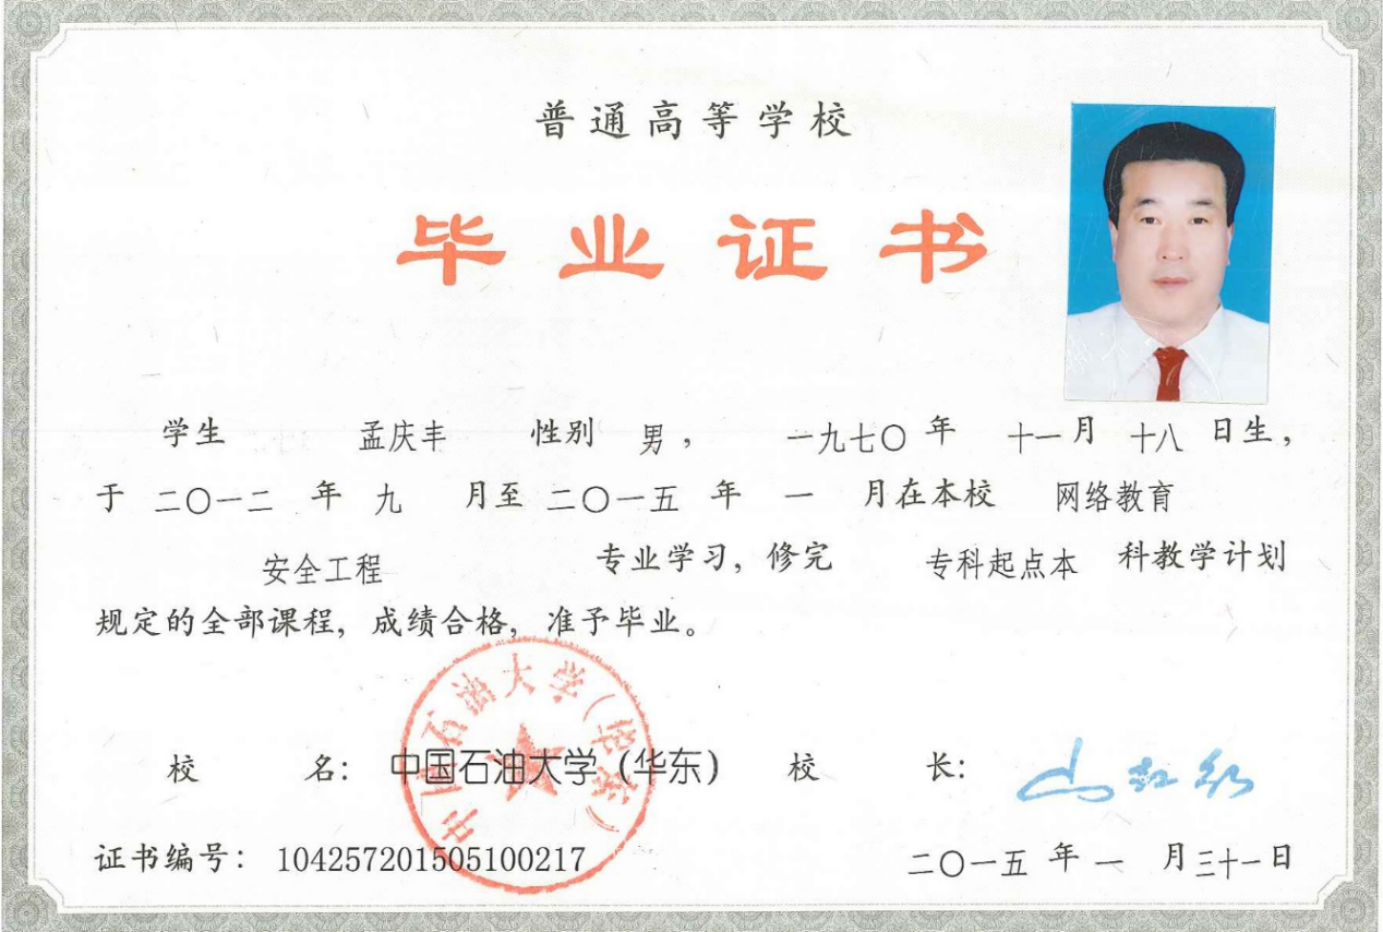 普通高等学校
毕业证书
学生 孟庆丰 性别 男， 一九七〇 年 十一 月 十八 日生，
于 二〇一二 年 九 月至 二〇一五 年 一 月在本校 网络教育
安全工程 专业学习，修完 专科起点本 科教学计划
规定的全部课程，成绩合格，准予毕业。
中国石油大学（华东）
校 名： 中国石油大学（华东） 校 长：
证书编号： 104257201505100217 二〇一五 年 一 月 三十一 日